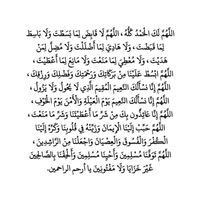 اللَّهُمَّ لَكَ الْحَمْدُ كُلُّهُ ، اللَّهُمَّ لَا قَابِضَ لِمَا بَسَطْتَ وَلَا بَاسِطَ
لِمَا قَبَضْتَ ، وَلَا هَادِيَ لِمَا أَضْلَلْتَ وَلَا مُضِلَّ لِمَنْ
هَدَيْتَ ، وَلَا مُعْطِيَ لِمَا مَنَعْتَ وَلَا مَانِعَ لِمَا أَعْطَيْتَ ،
اللَّهُمَّ ابْسُطْ عَلَيْنَا مِنْ بَرَكَاتِكَ وَرَحْمَتِكَ وَفَضْلِكَ وَرِزْقِكَ ،
اللَّهُمَّ إِنَّا نَسْأَلُكَ النَّعِيمَ الْمُقِيمَ الَّذِي لَا يَحُولُ وَلَا يَزُولُ ،
اللَّهُمَّ إِنَّا نَسْأَلُكَ النَّعِيمَ يَوْمَ الْعَيْلَةِ وَالْأَمْنَ يَوْمَ الْخَوْفِ ،
اللَّهُمَّ إِنَّا عَائِذُونَ بِكَ مِنْ شَرِّ مَا أَعْطَيْتَنَا وَشَرِّ مَا مَنَعْتَ ،
اللَّهُمَّ حَبِّبْ إِلَيْنَا الْإِيمَانَ وَزَيِّنْهُ فِي قُلُوبِنَا وَكَرِّهْ إِلَيْنَا
الْكُفْرَ وَالْفُسُوقَ وَالْعِصْيَانَ وَاجْعَلْنَا مِنَ الرَّاشِدِينَ ،
اللَّهُمَّ تَوَفَّنَا مُسْلِمِينَ وَأَحْيِنَا مُسْلِمِينَ وَأَلْحِقْنَا بِالصَّالِحِينَ
غَيْرَ خَزَايَا وَلَا مَفْتُونِينَ يا أرحم الراحمين.